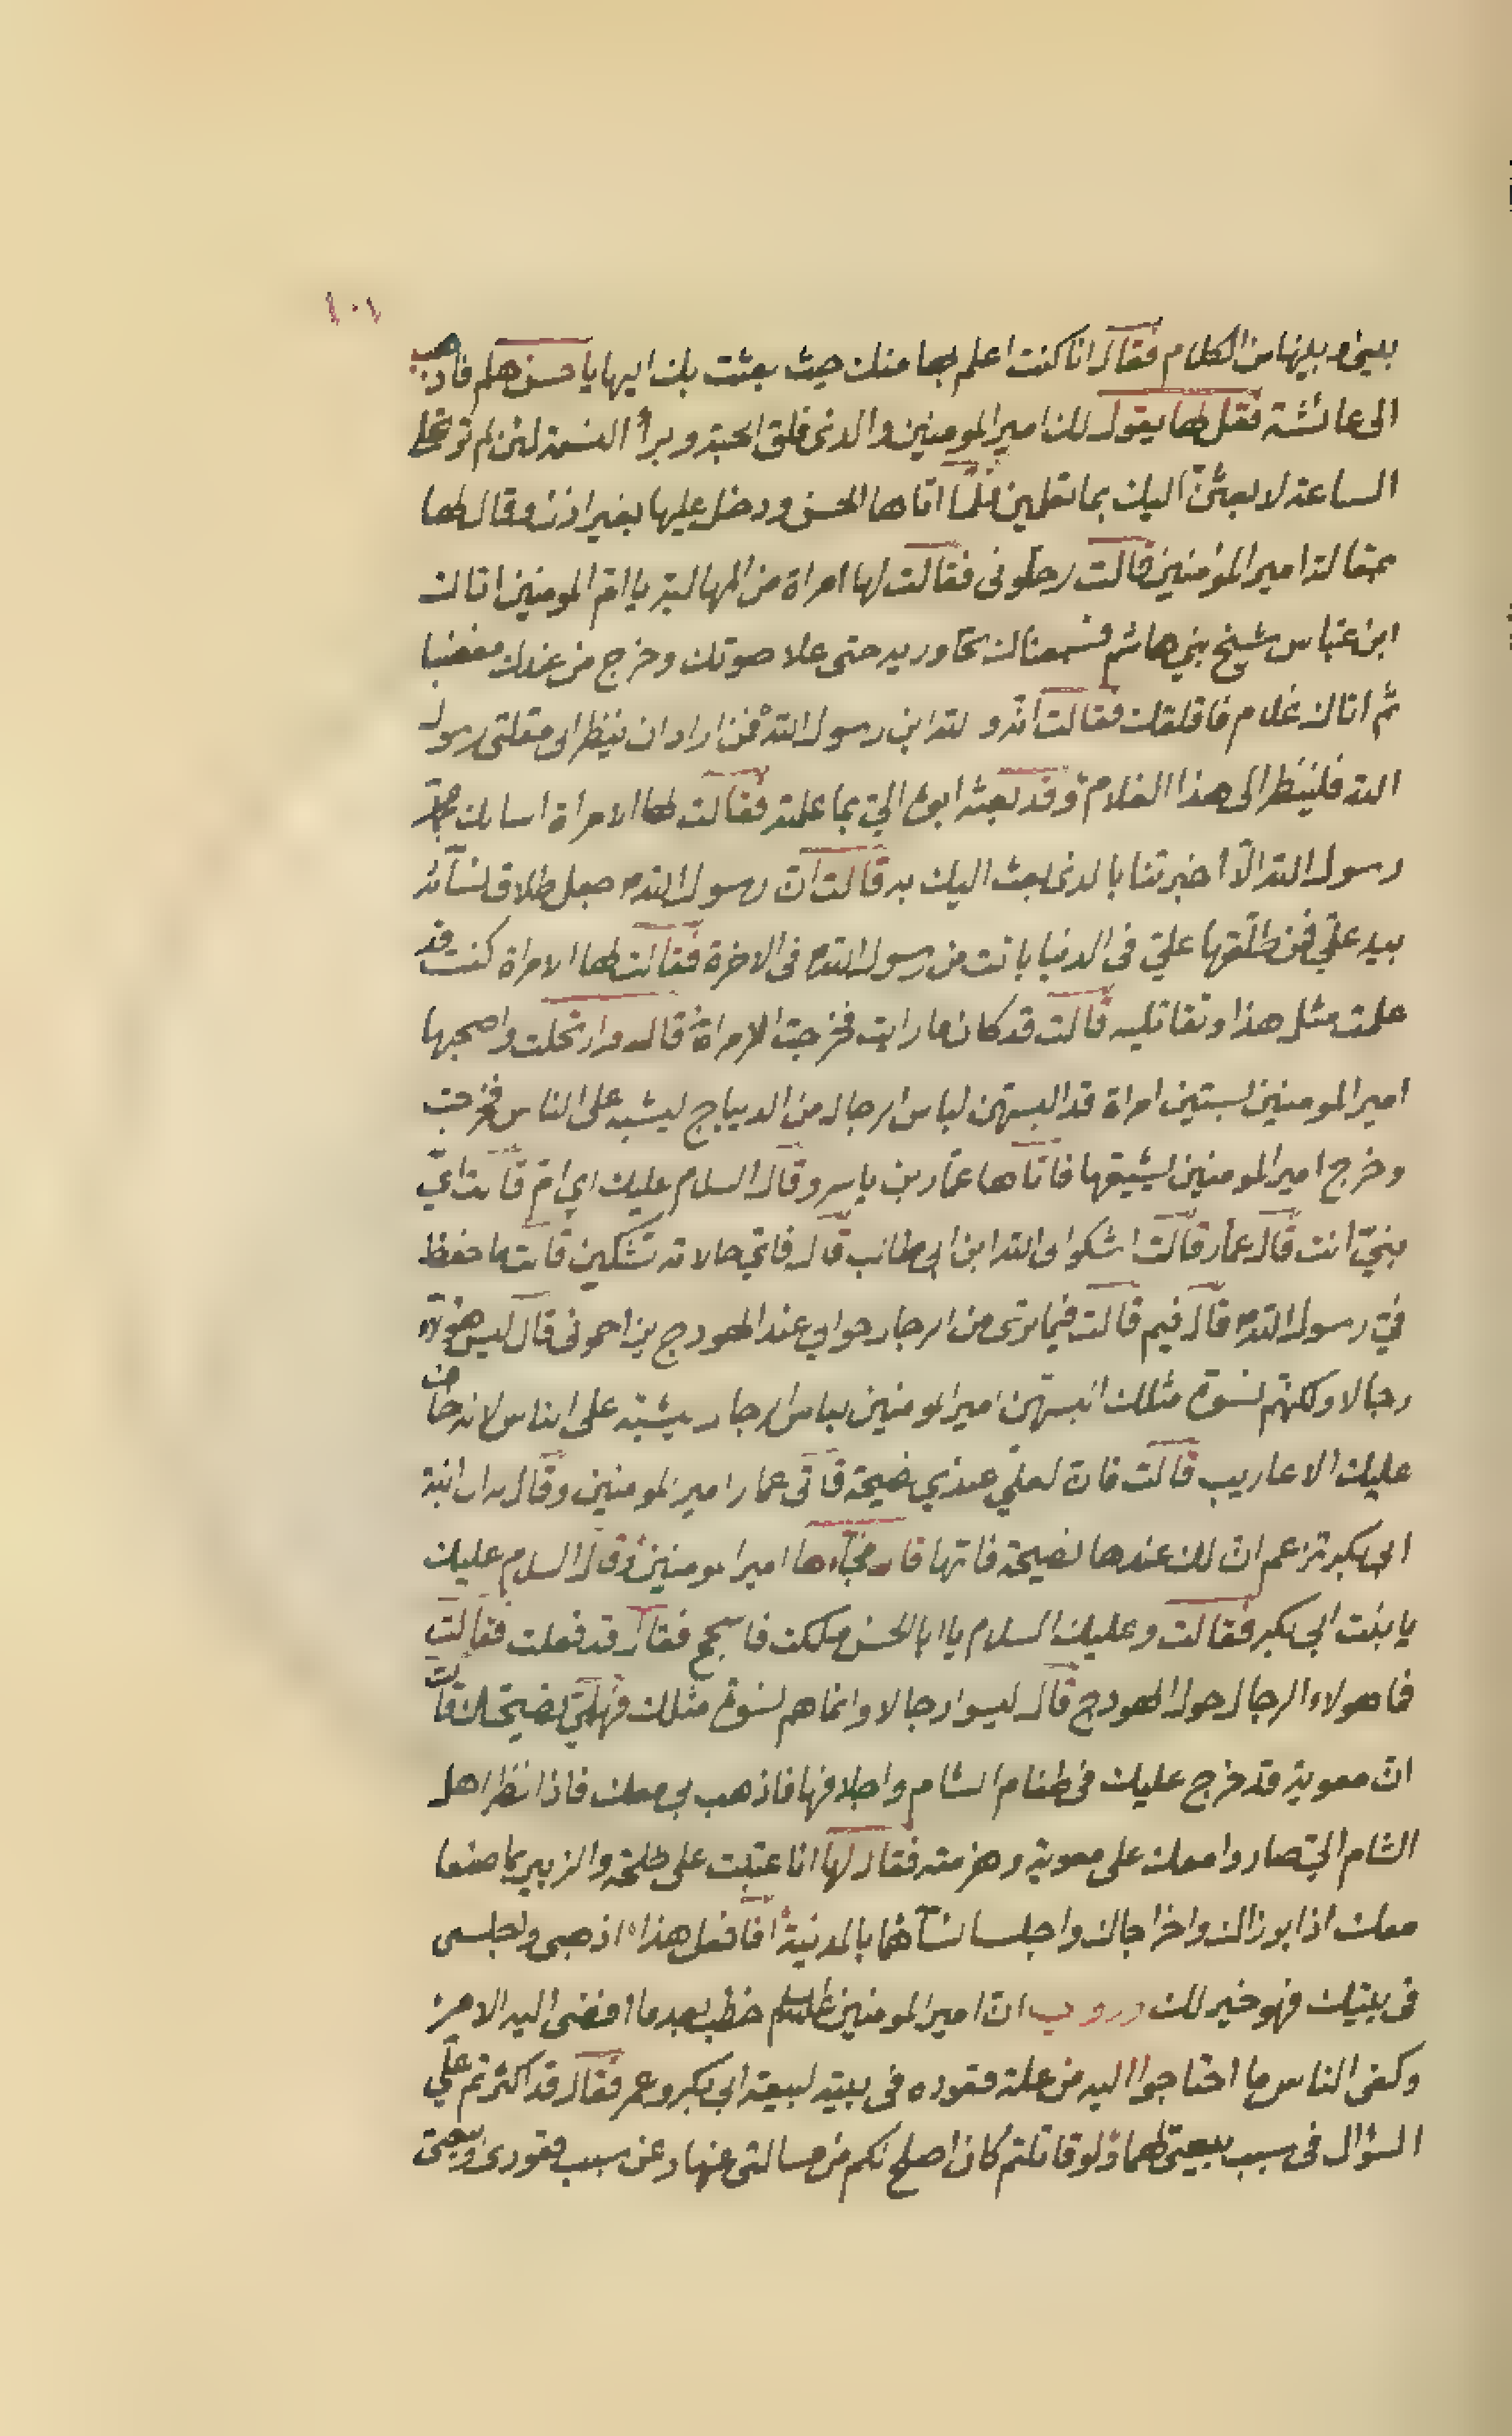 ١٠١
بيني وبينها من الكلام فقال انا كنت اعلم بها منك حيث بعثت بك اليها يا حسن هلم فاذهب
الى عائشة فقل لها يقول لك امير المومنين والذى فلق الحبة وبرأ النسمة لئن لم ترتحلى
الساعة لابعثنّ اليك بما تعلمين فلمّا اتاها الحسن ودخل عليها بغير اذن وقال لها
مقالة امير المؤمنين قالت رحلونى فقالت لها امراة من المهالبة يا امّ المومنين اتاك
ابن عبّاس شيخ بني هاشم فسمعناك تحاوريه حتى علا صوتك وخرج من عندك مغضبا
ثم اتاك غلام فاقلقك فقالت انّه والله ابن رسول الله فمن اراد ان ينظر الى مقلتى رسول
الله فلينظر الى هذا الغلام وقد بعثه ابوه اليّ بما علمته فقالت لها الامراة اسالك بحقّ
رسول الله الّا اخبرتنا بالذى بعث اليك به قالت انّ رسول الله جعل طلاق نسآئه
بيد عليّ فمن طلّقها عليّ فى الدنيا بانت من رسول الله فى الاخرة فقالت لها الامراة كنت قد
علمت مثل هذا وتقاتليه قالت قد كان ما رايت فخرجت الامراة قال وارتحلت واصحبها
امير المومنين لستين امراة قد البسهن لباس الرجال من الديباج ليشبه على الناس فخرجت
وخرج امير المومنين ليشيعها فاتاها عمّار بن ياسر وقال السلام عليك اي امّ قالت ايّ
بنيّ انت قال عمار قالت اشكو الى الله ابن ابى طالب قال فاي حالاته تشكين قالت ما حفظ
فيّ رسول الله قال فيم قالت فيما ترى من الرجال حوالي عند الهودج يزاحمونى قال ليس هؤلاء
رجالا ولكنهم نسوة مثلك البسهن امير المومنين لباس الرجال يشبّه على الناس لانه خاف
عليك الاعاريب قالت فان لعلي عندي نصيحة فاتى عمار امير المومنين وقال ان ابنة
ابى بكر تزعم ان لك عندها نصيحة فاتها قال فجآءها امير المومنين وقال السلام عليك
يا بنت ابى بكر فقالت وعليك السلام يا ابا الحسن ملكت فاسجح فقال قد فعلت فقالت
فما هولاء الرجال حول الهودج قال ليسوا رجالا وانما هم نسوة مثلك فهلمّي نصيحتك قالت
ان معوية قد خرج عليك فى طغام الشام واجلافها فاذهب بي معك فاذا نظر اهل
الشام اليّ صاروا معك على معوية وهزمته فقال لها انا عتبت على طلحة والزبير بما صنعا
معك اذ ابرزاك واخرجاك واجلسا نسآئهما بالمدينة افافعل هذا اذهبى واجلسى
فى بيتك فهو خير لك وروي ان امير المومنين خطب بعد ما افضى اليه الامر
وكفى الناس ما احتاجوا اليه من علة قعوده فى بيته لبيعة ابى بكر وعمر فقال قد اكثرتم عليّ
السؤال فى سبب بيعتى لهما ولو قاتلتم كان اصلح لكم من مسالتى عنها وعن سبب قعودى وبيعتى